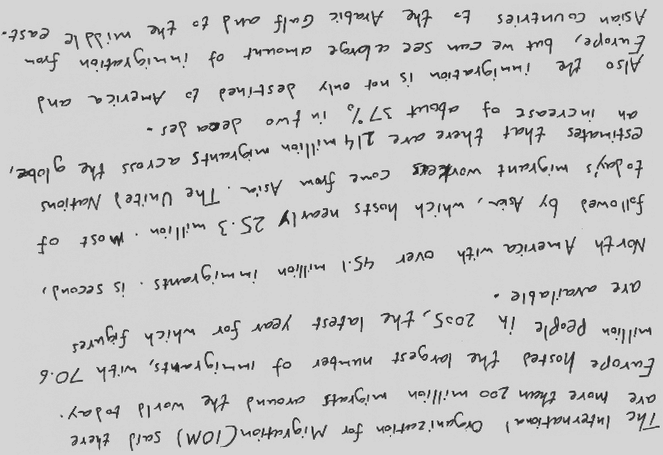 The International Organization for Migration (IOM) said there
are more than 200 million migrats around the world today.
Europe hosted the largest number of immigrants, with 70.6
million People in 2005, the latest year for which figures
are available.
North America with over 45.1 million immigrants. is second,
followed by Asia, which hosts nearly 25.3 million. Most of
today's migrant workers come from Asia. The United Nations
estimates that there are 214 million migrants across the globe,
an increase of about 37% in two decades.
Also the inmigration is not only destined to America and
Europe, but we can see a large amount of inmigration from
Asian countries to the Arabic Gulf and to the middle east.